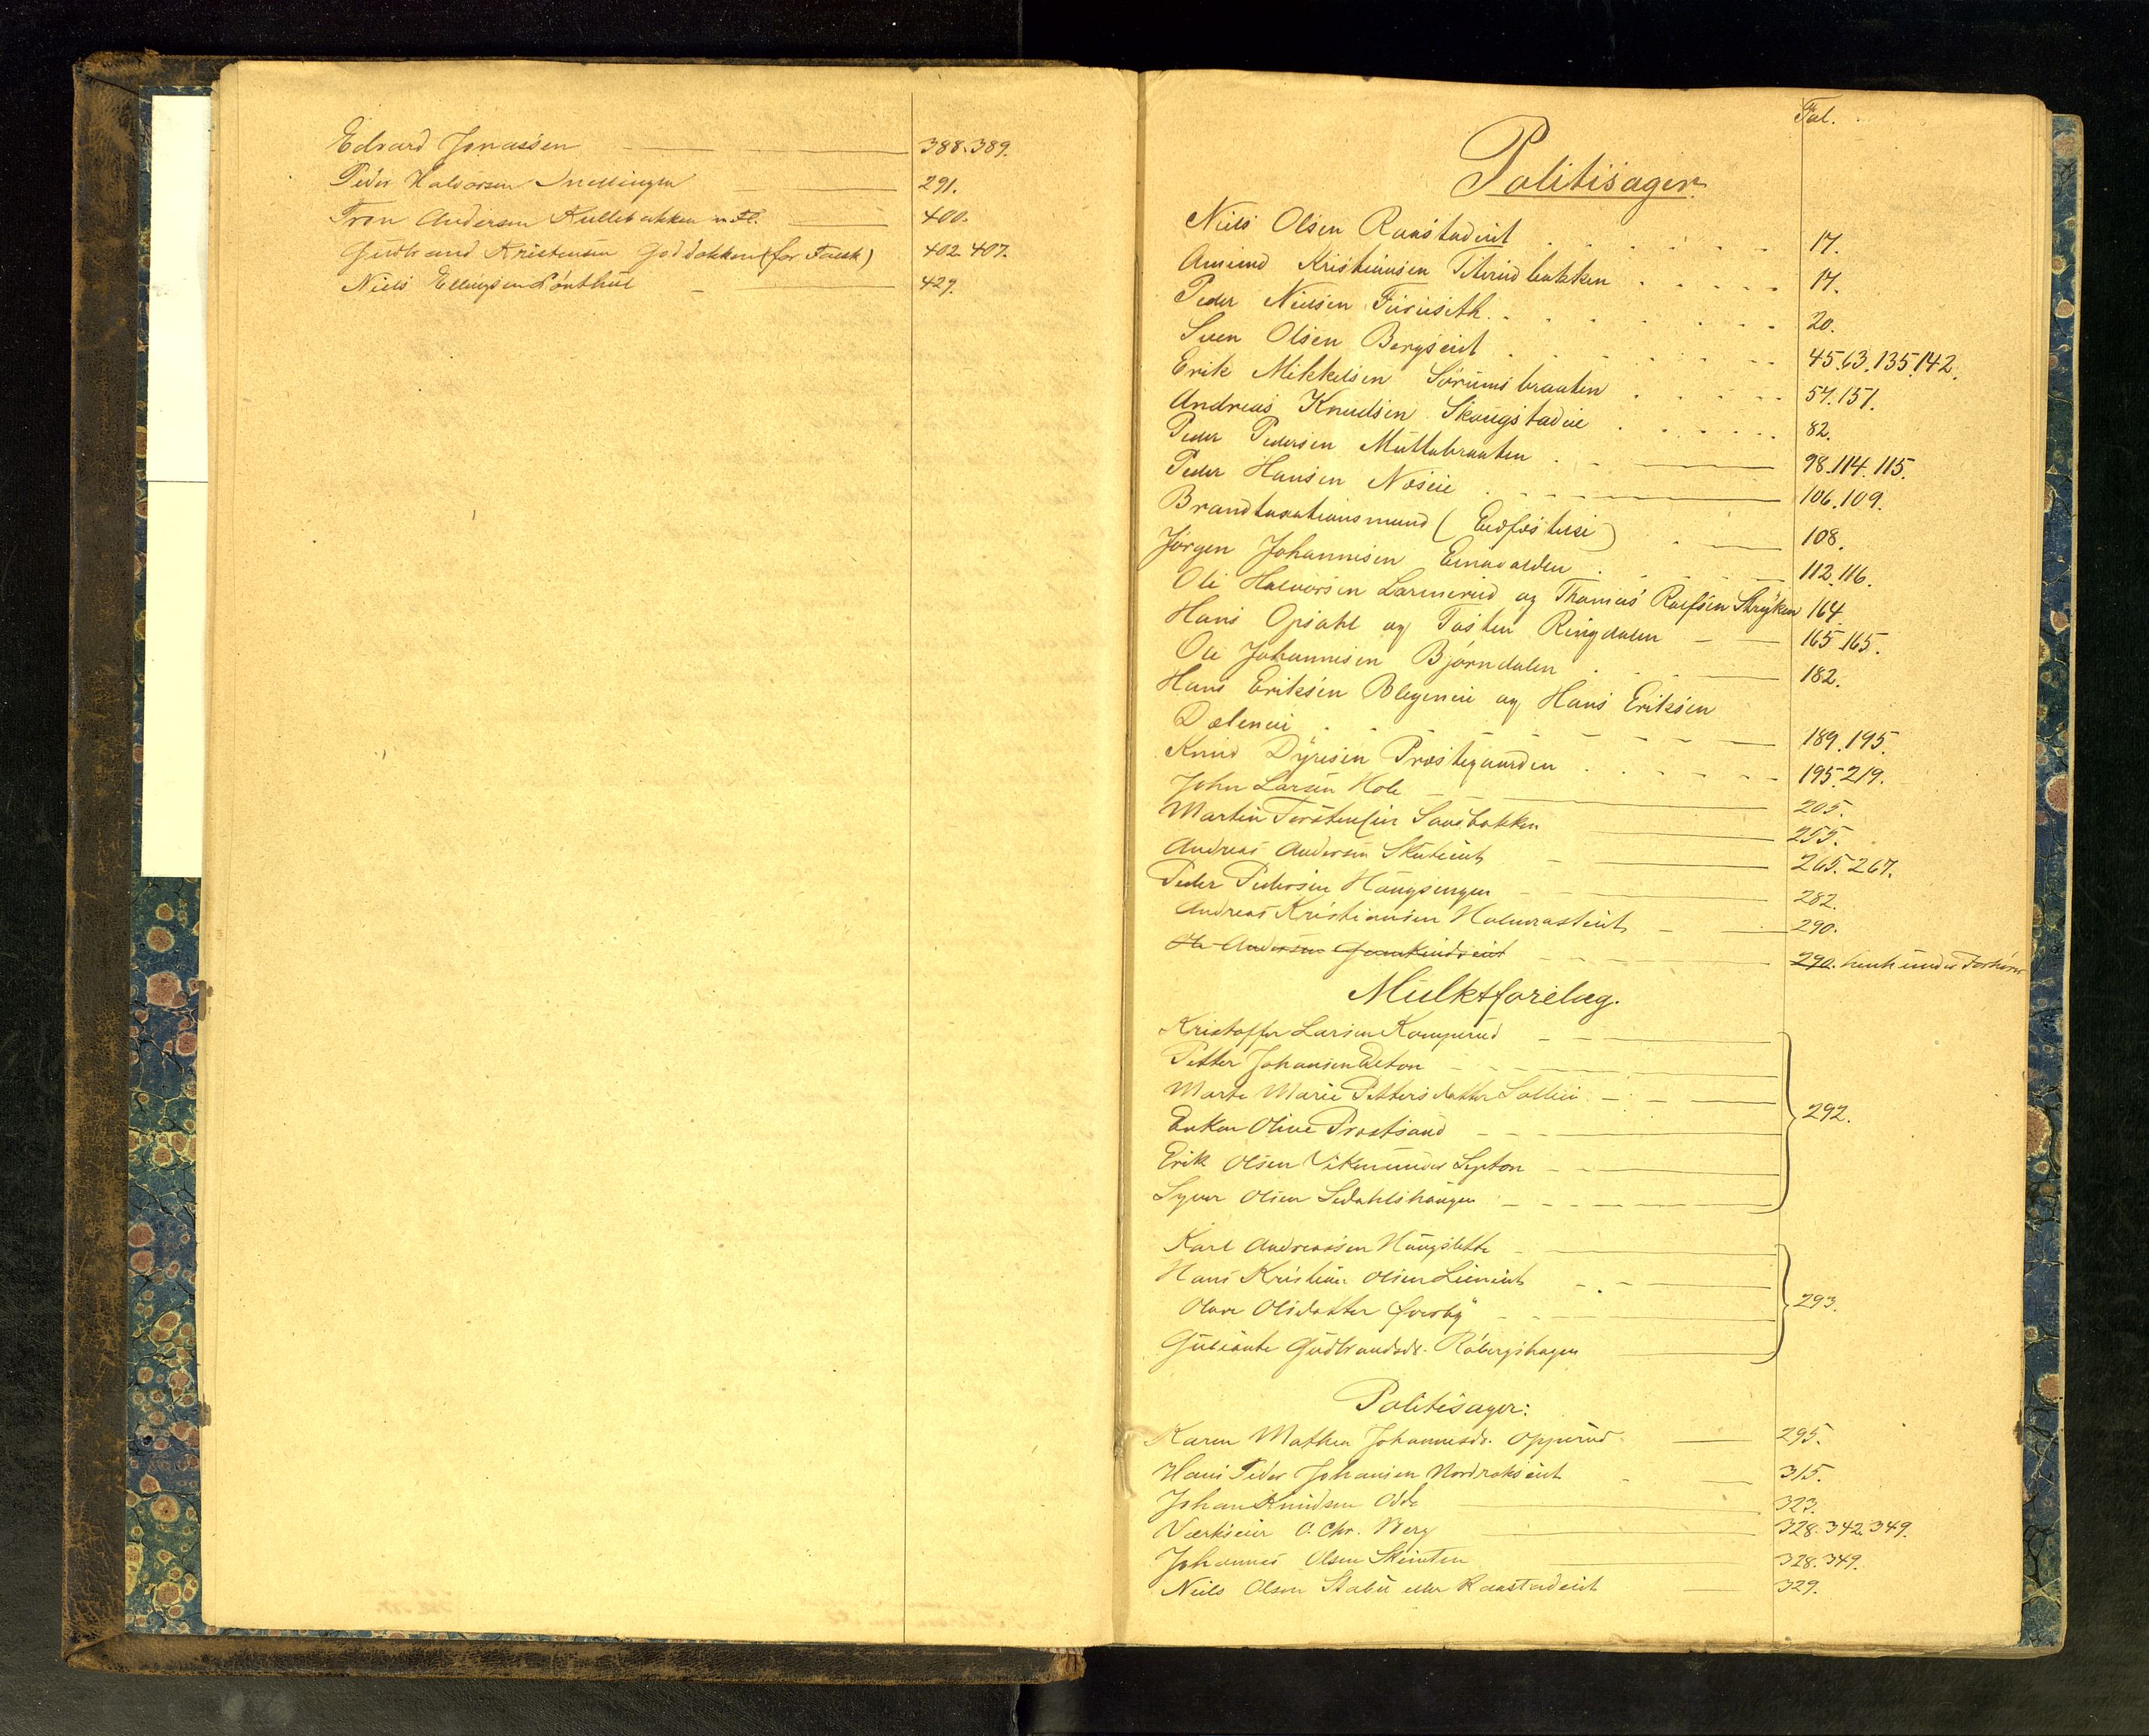 Edvard Jonassen 388.389.
Peder Halvorsen Snellingen 291.
Tron Andersen Kullebakken m.fl. 400.
Gudbrand Kristensen Goddakken (for Falsk) 402.407.
Niels Ellingsen Lønthul 429.
Fol.
Politisager.
Niels Olsen Raastadeiet 17.
Amund Kristiansen Titerudbakken 17.
Peder Nielsen Furuseth 20.
Sven Olsen Bergseiet 45.63.135.142.
Erik Mikkelsen Sørumsbraaten 57.151.
Andreas Knudsen Skougstadeie 82.
Peder Pedersen Muttabraaten 98.114.115.
Peder Hansen Næseie 106.109.
Brandtaxationsmænd (Eedfæstelse) 108.
Jørgen Johannesen Einavolden 112.116.
Ole Halvorsen Larmerud og Thomas Rolfsen Stryken 164.
Hans Opsahl og Tosten Ringdalen 165.165.
Ole Johannesen Bjørndalen 182.
Hans Eriksen Blegeneie og Hans Eriksen
Dæleneie 189.195.
Knud Dyresen Præstegaarden 195.219.
John Larsen Hole 205.
Martin Torstensen Sausbakken 255.
Andreas Andersen Skuteiet 265.267.
Peder Pedersen Haugsengen 282.
Andreas Kristiansen Holmrasteiet 290.
Ole Andersen 290. under Forhører
Mulktforelæg.
Kristoffer Larsen Komperud
Petter Johansen Elton
Marte Marie Pettersdatter Sollie
Enken Olive Prostsand
Erik Olsen Viken under Septon
Syver Olsen Sedahlshaugen
292.
Karl Andreassen Haugslette
Hans Kristian Olsen Lieneiet
Olave Olsdatter Øverby
Guliante Gudbrandsdr. Røbergshagen
293.
Politisager:
Karen Mathea Johannesdr. Opperud 295.
Hans Peder Johansen Nordrakseiet 315.
Johan Knudsen Odde 323.
Værkseier O. Chr. Berg 328.342.349.
Johannes Olsen Skeinten 328.349.
Niels Olsen Stabu eller Raastadeiet 329.